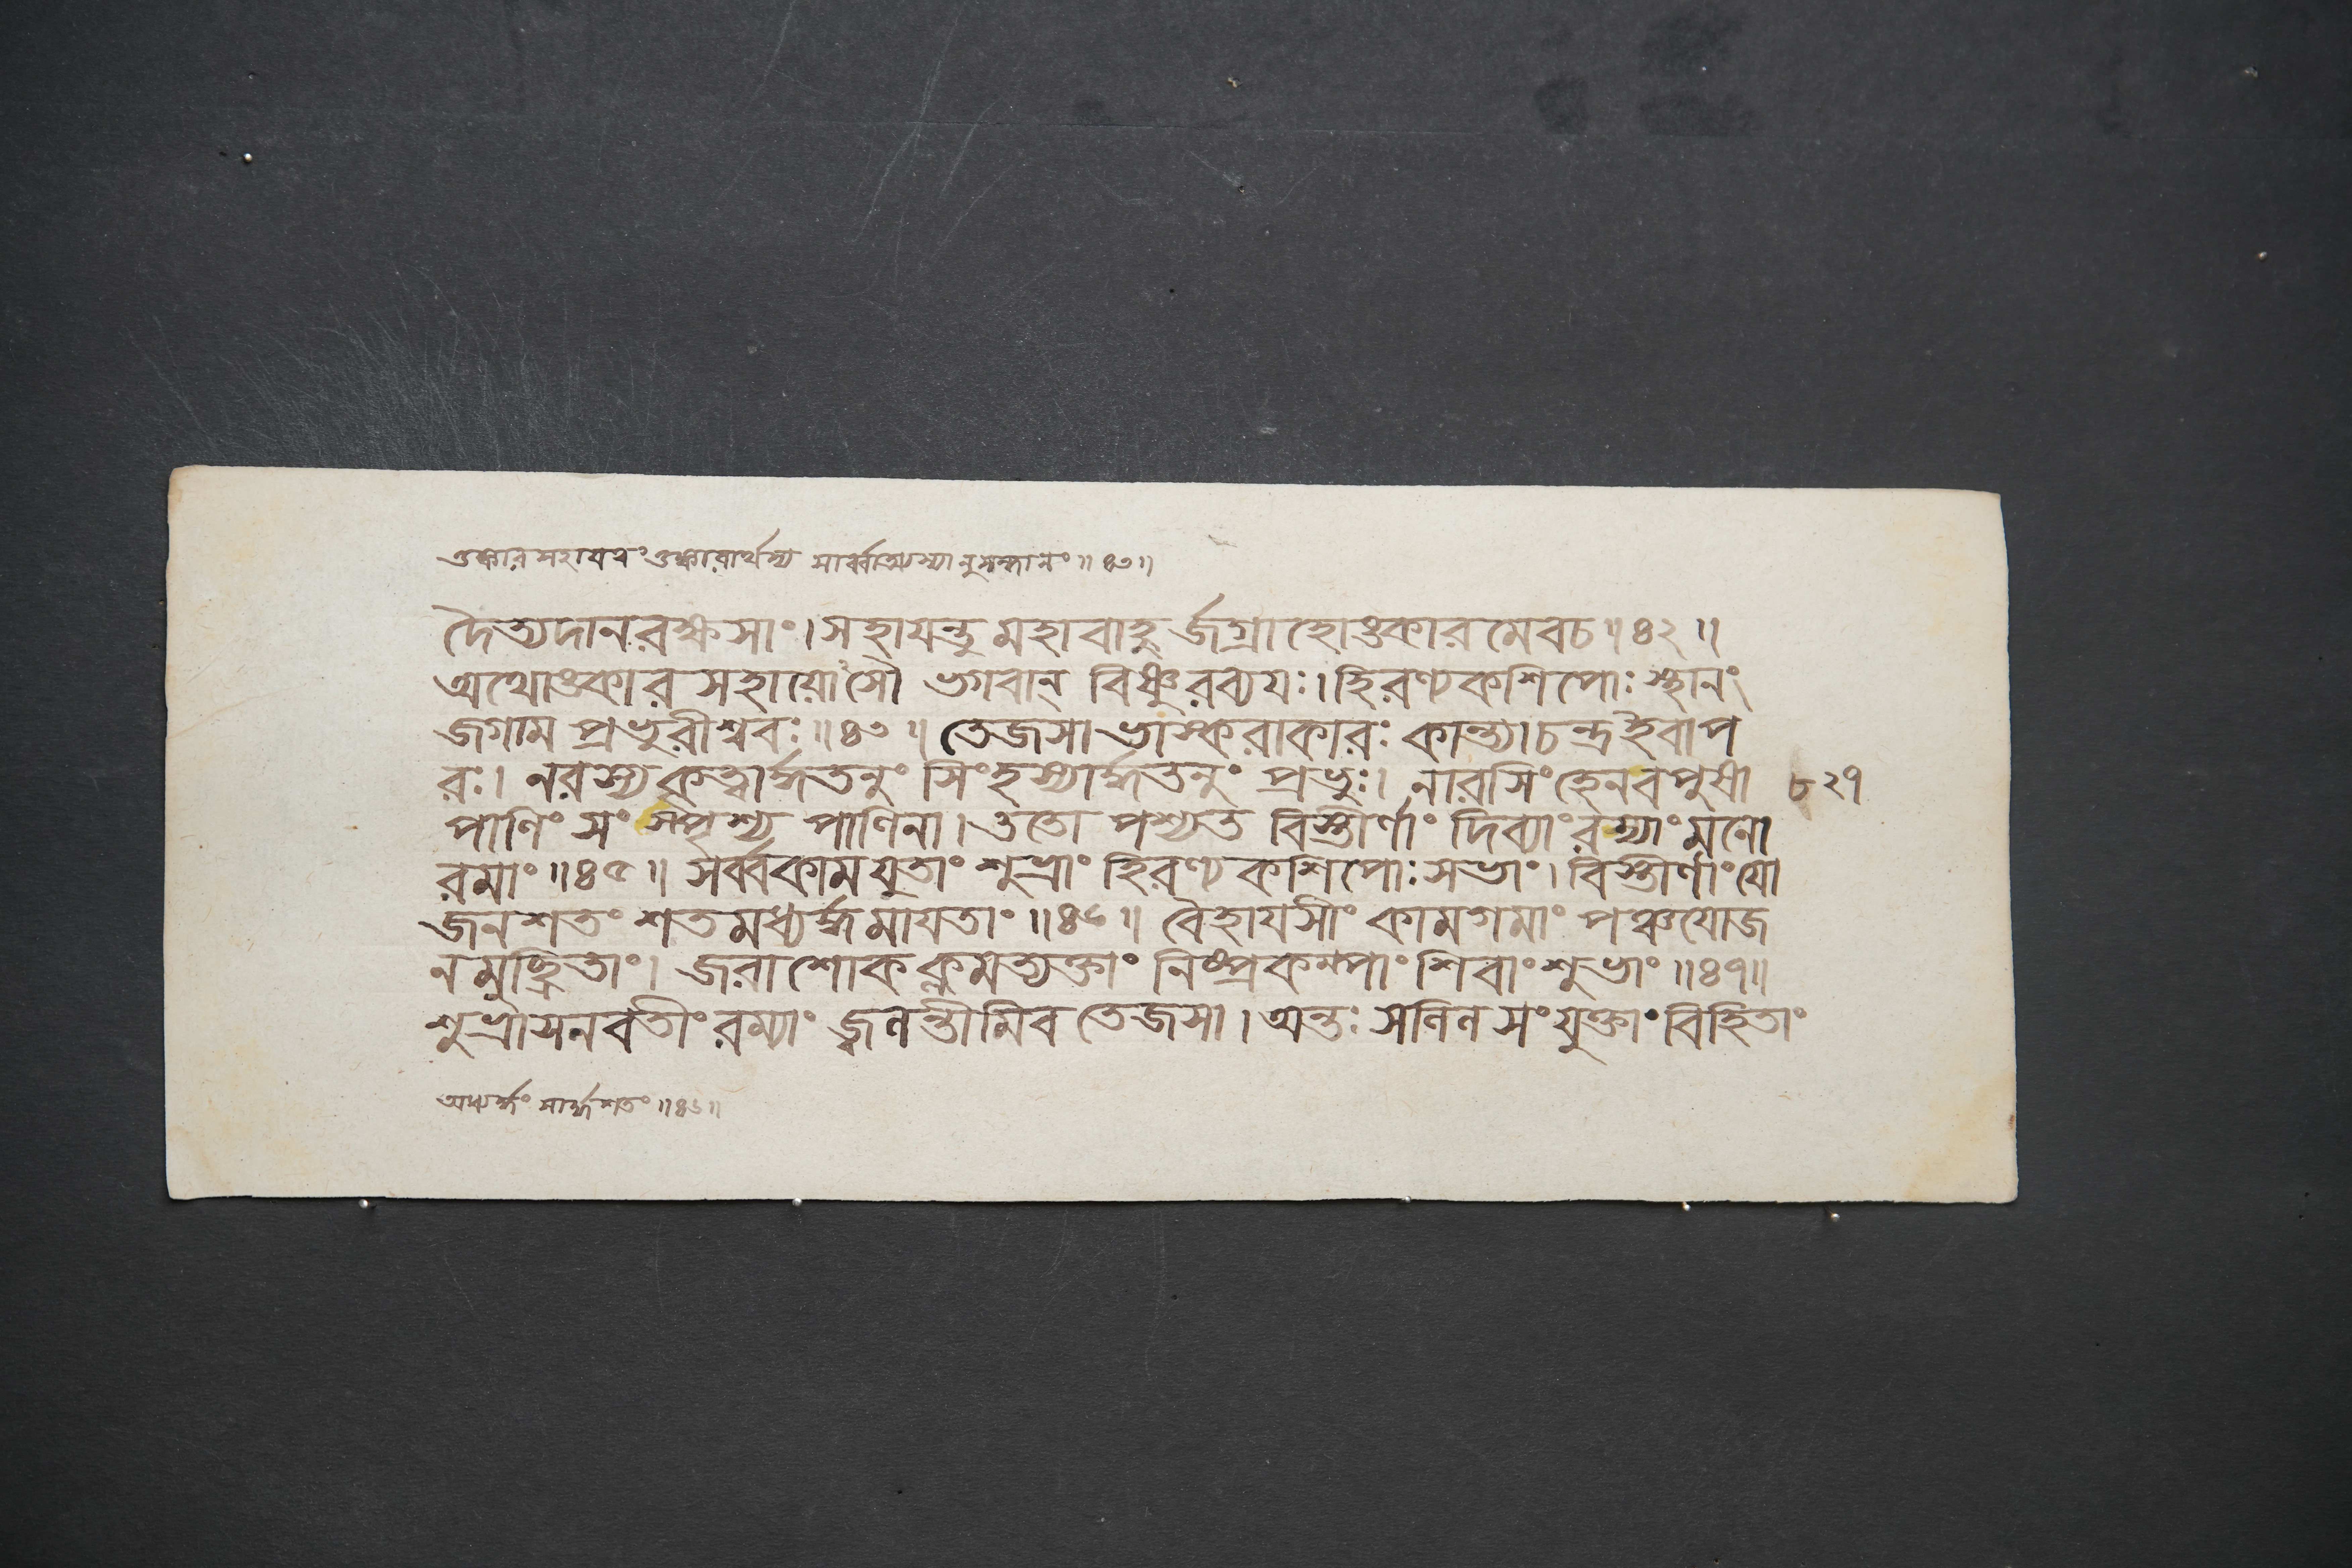 ওঙ্কারসহাযবং ওঙ্কারার্থস্য সার্ব্বাত্ম্যস্যানুসন্ধানং ॥৪৩॥
দৈত্যদানরক্ষসাং। সহাযন্তু মহাবাহু র্জগ্রাহোওকারমেবচ ॥৪২॥
অথোওকার সহাযো সৌ ভগবান্ বিষ্ণুরব্যযঃ। হিরণ্যকশিপোঃ স্থানং
জগাম প্রভুরীশ্বরঃ ॥৪৩॥ তেজসা ভাস্করাকারঃ কান্ত্যা চন্দ্রইবাপ
রঃ। নরস্য কৃত্বার্দ্ধতনুং সিংহস্যার্দ্ধতনুং প্রভুঃ। নারসিংহেনবপুষা ৮২৭
পাণিং সংস্পৃশ্য পাণিনা। ততো পশ্যত বিস্তীর্ণাং দিব্যাং রম্যাং মনো
রমাং ॥৪৫॥ সর্ব্বকামযুতাং শুভ্রাং হিরণ্যকশিপোঃ সভাং। বিস্তীর্ণাং যো
জনশতং শতমধ্যর্দ্ধমাযতাং ॥৪৬॥ বৈহাযসীং কামগমাং পঞ্চযোজ
নমুচ্ছ্রিতাং। জরাশোকক্লমত্যক্তাং নিষ্প্রকম্পাং শিবাং শুভাং ॥৪৭॥
শুভ্রাসনবতীং রম্যাং জ্বলন্তীমিব তেজসা। অন্তঃ সলিল সংযুক্তাং বিহিতাং
অধ্যর্দ্ধং সার্দ্ধশতং ॥৪৬॥